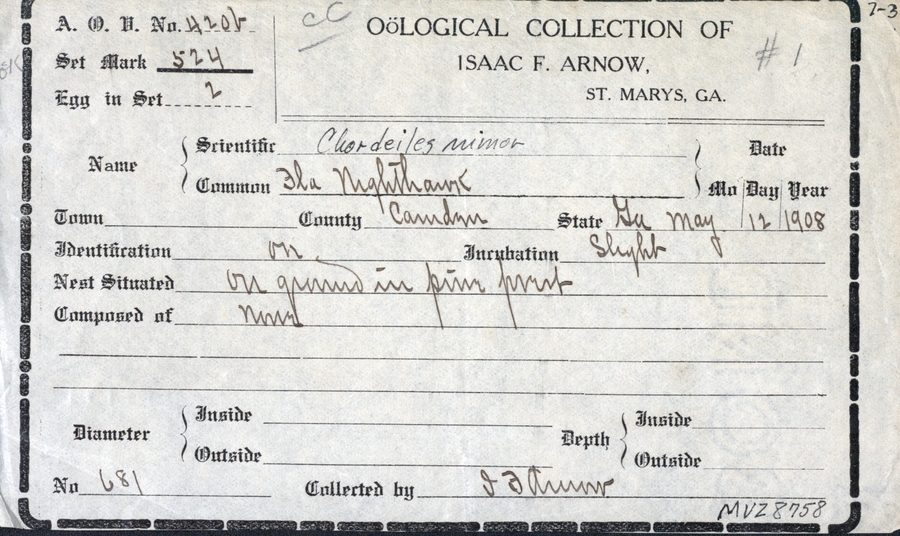 A. O. U. No. 420b
CC
OöLOGICAL COLLECTION OF
7-3
Set Mark 524
ISAAC F. ARNOW,
# 1
Egg in Set 2
ST. MARYS, GA.
Name
Scientific Chordeiles minor
Date
Common Fla Nighthawk
Mo Day Year
Town County Camden State Ga May 12 1908
Identification on Incubation Slight
Nest Situated on ground in pine forest
Composed of None
Diameter
Inside
Outside
Depth
Inside
Outside
No 681 Collected by I F Arnow
MVZ 8758